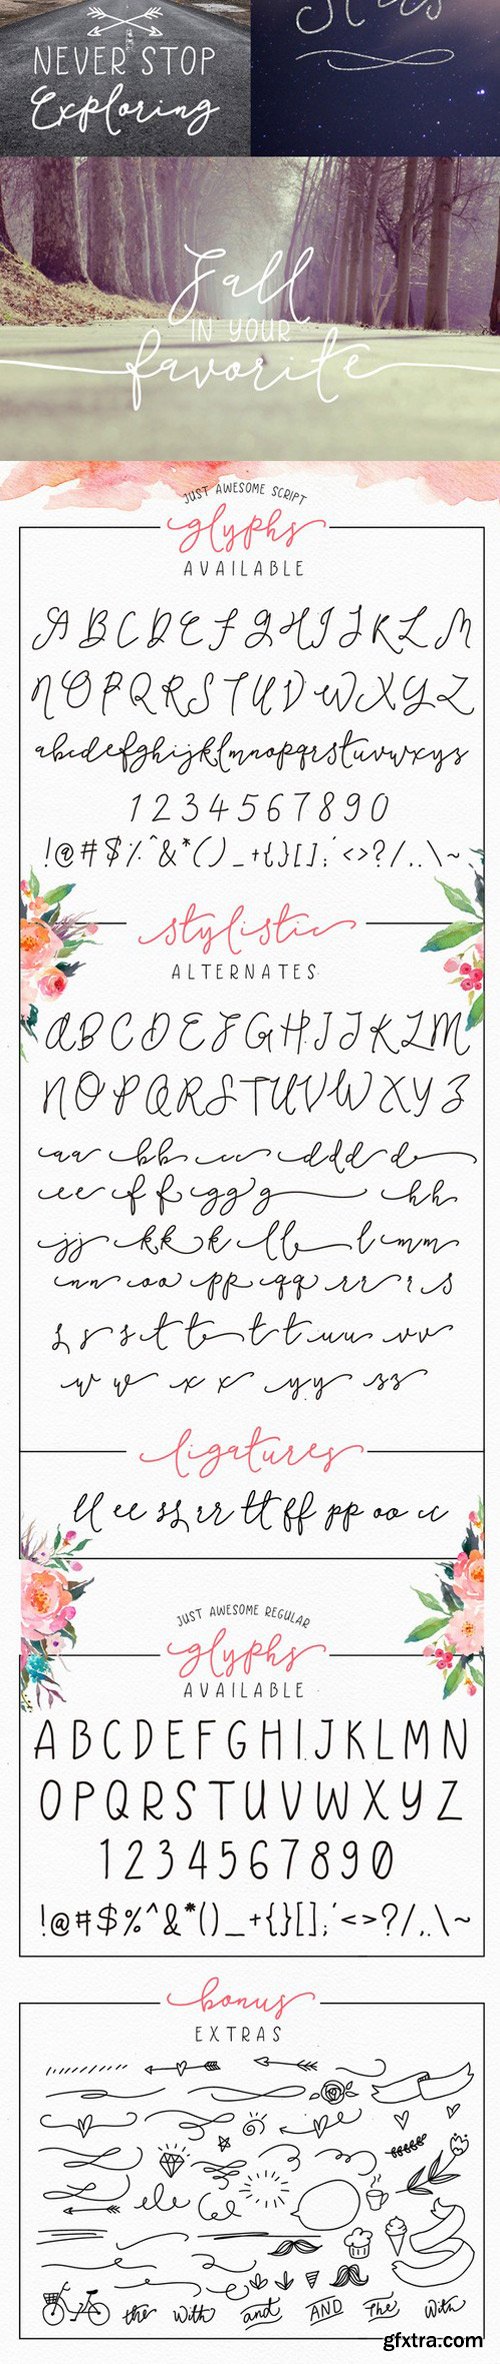 NEVER STOP
Exploring
Stars
Fall
IN YOUR
favorite
JUST AWESOME SCRIPT
glyphs
AVAILABLE
A B C D E F G H I J K L M
N O P Q R S T U V W X Y Z
abcdefghijklmnopqrstuvwxyz
1 2 3 4 5 6 7 8 9 0
!@#$%^&*()_+{}[];'<>?/,.\~
stylistic
ALTERNATES
A B C D E F G H I J K L M
N O P Q R S T U V W X Y Z
aa bb cc ddd d
ee f f gg g hh
jj kk k ll l mm
nn oo pp qq rr r s
s s s t t t t uu vv
w w x x yy zz
ligatures
ll ee ss rr tt ff pp oo cc
JUST AWESOME REGULAR
glyphs
AVAILABLE
A B C D E F G H I J K L M N
O P Q R S T U V W X Y Z
1 2 3 4 5 6 7 8 9 0
!@#$%^&*()_+{}[];'<>?/,.\~
bonus
EXTRAS
the with and AND The With
gfxtra.com